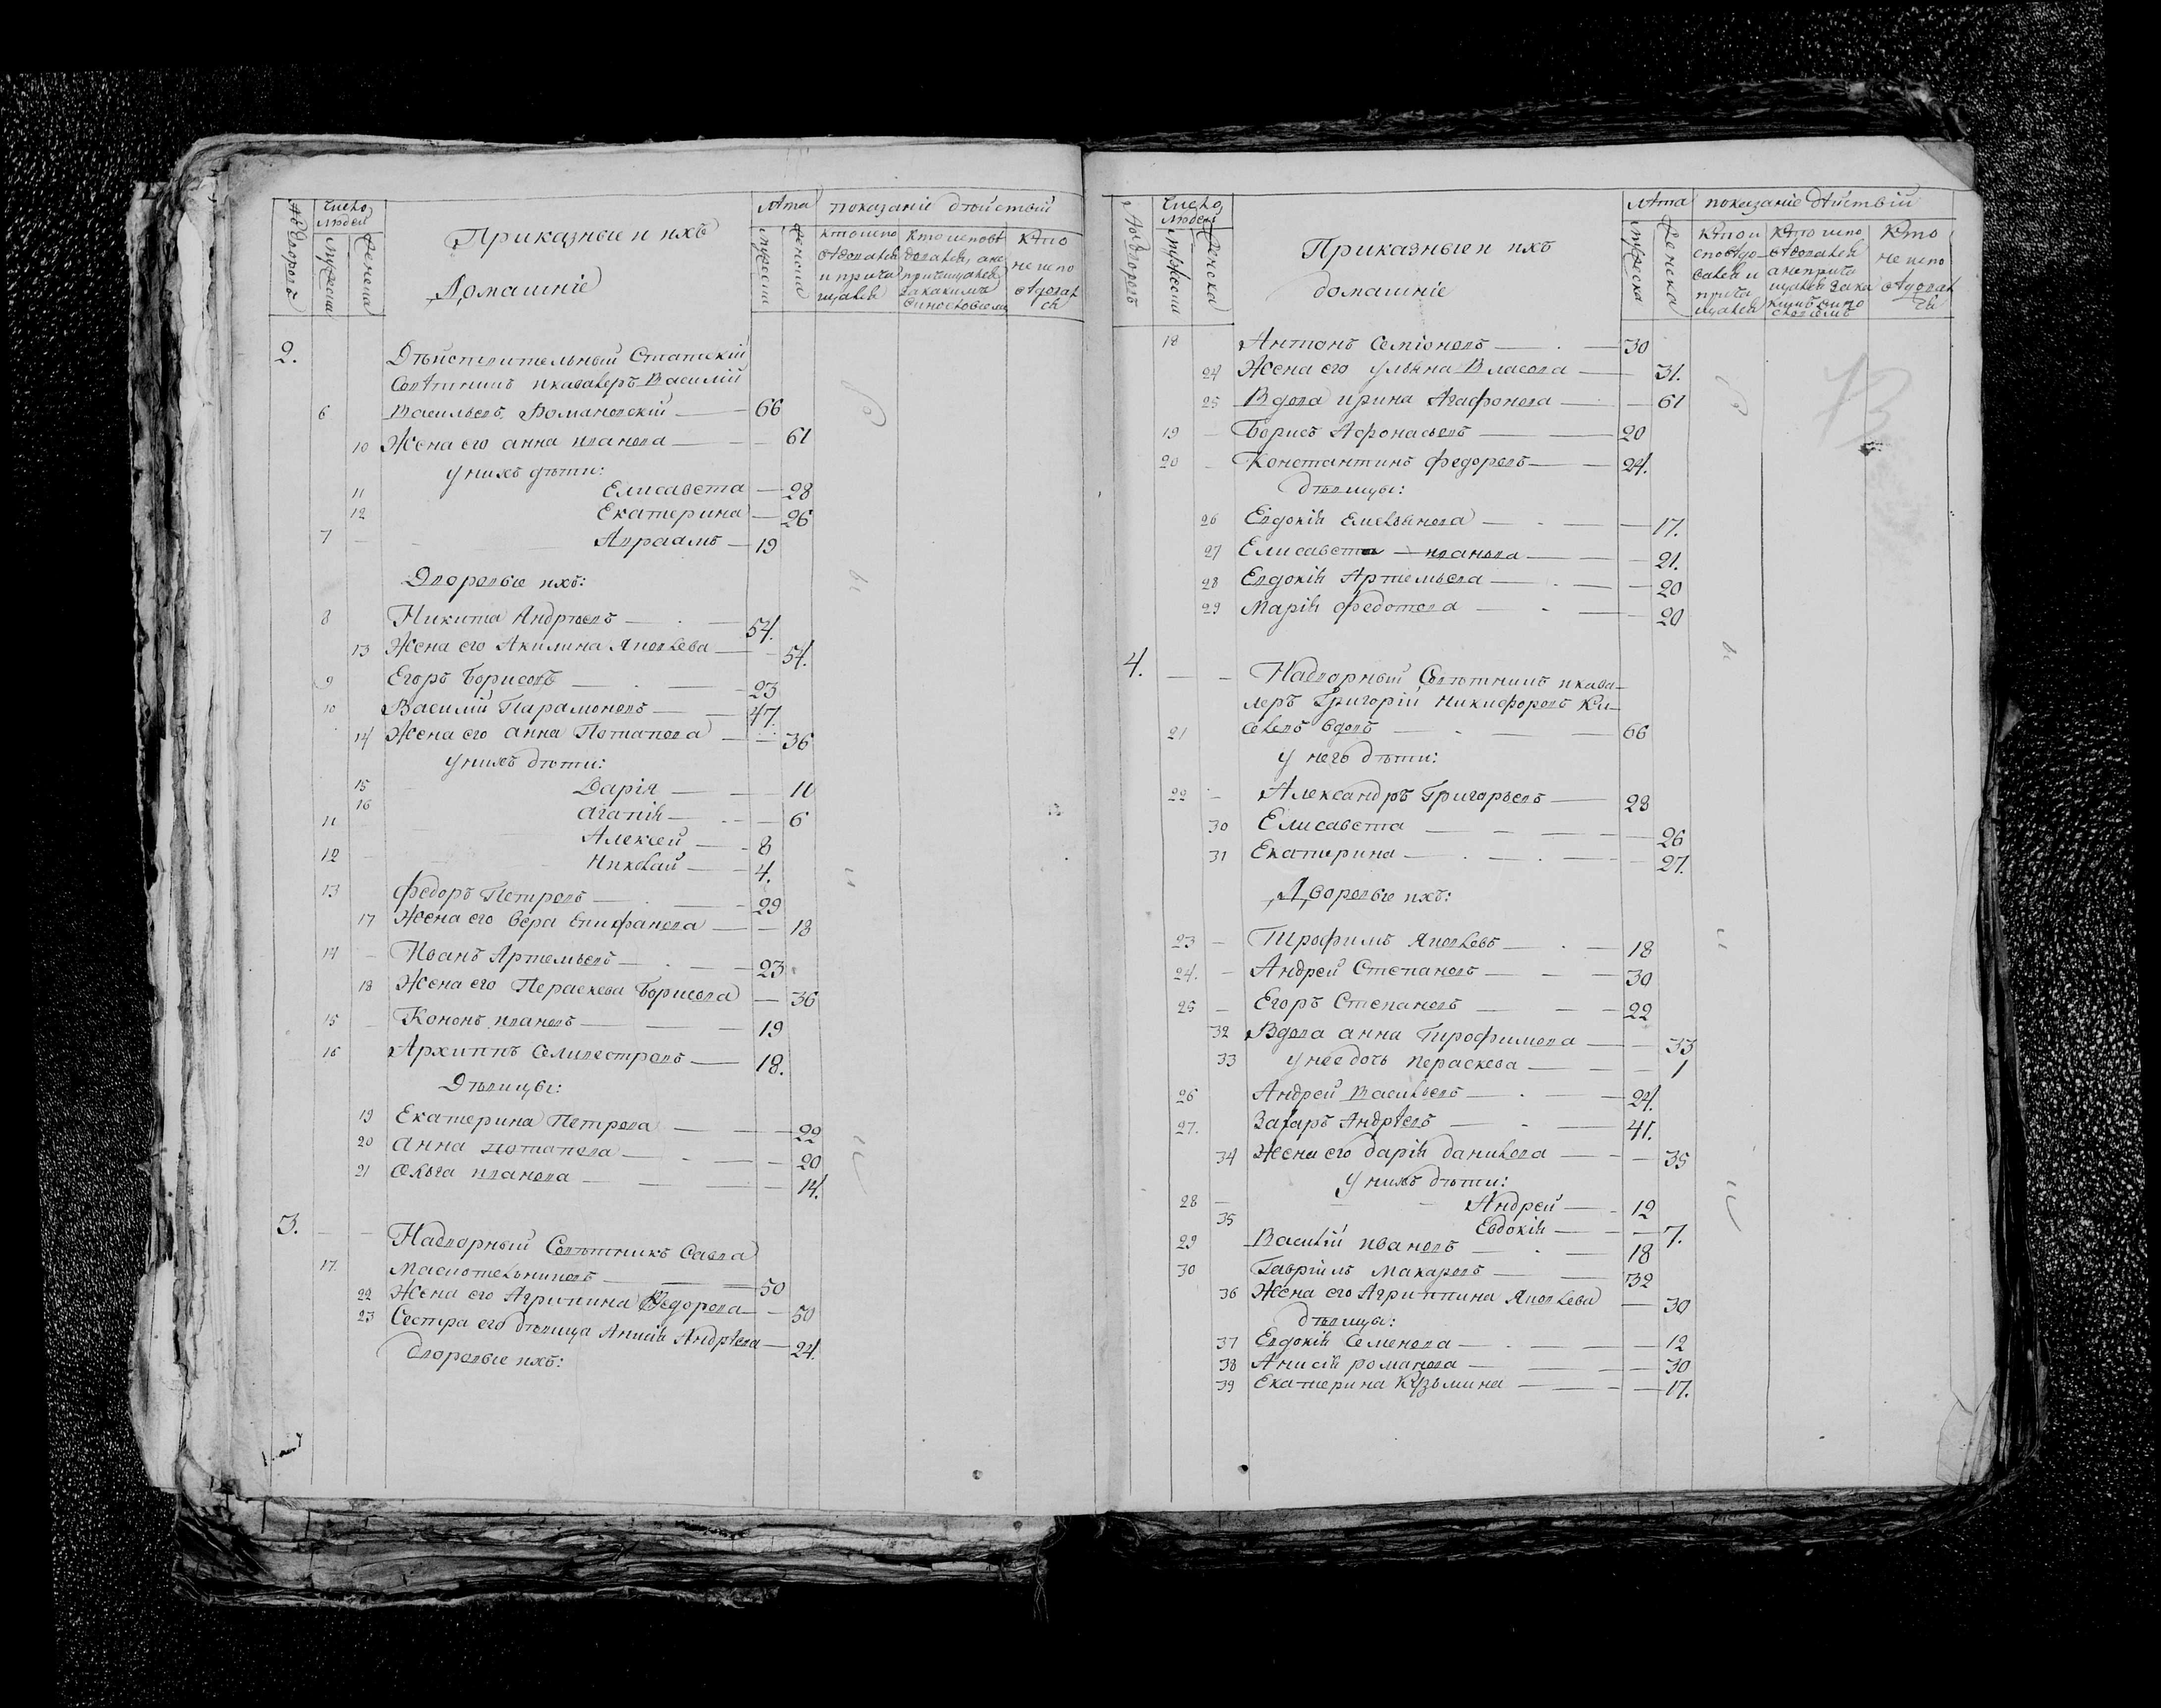 № дворовъ
Число людей
мужеска
женска
Приказные и ихъ
Домашніе
Лѣта
мужеска
женска
показаніе дѣйствій
кто испо
вѣдался
и прича
щался
кто исповѣ
дался, а не
причащался
за какимъ
винословіемъ
кто
не испо
вѣдалъ
ся
2. Дѣйствительный Статскій
Совѣтникъ и кавалеръ Василій
6 Васильевъ Романовской — 66
10 Жена его анна иванова — 61
у нихъ дѣти:
11 Елисавета — 28
12 Екатерина — 26
7 Авраамъ — 19
Дворовые ихъ:
8 Никита Андрѣевъ — 54.
13 Жена его Акилина Яковлева — 54.
9 Егоръ Борисовъ — 23
10 Василій Парамоновъ — 47.
14 Жена его анна Потапова — 36
у нихъ дѣти:
15 Дарія — 11
16 агапія — 6
11 Алексей — 8
12 Николай — 4.
13 федоръ Петровъ — 29
17 Жена его вера епифанова — 18
14 Иванъ Артемьевъ — 23
18 Жена его Параскева Борисова — 36
15 Кононъ ивановъ — 19
16 Архиппъ Селивестровъ — 18.
Дѣвицы:
19 Екатерина Петрова — 22
20 анна потапова — 20
21 Ольга иванова — 14.
3. Надворный Совѣтникъ Савва
17. Маслотельниковъ — 50
22 Жена его Агрипина Федорова — 50
23 Сестра его дѣвица Анисія Андрѣева — 24.
дворовые ихъ:
№ дворовъ
Число людей
мужеска
женска
Приказные и ихъ
домашніе
Лѣта
мужеска
женска
показаніе дѣйствій
кто и
сповѣдо
вался и
прича
щался
кто испо
вѣдался
а не прича
щался за ка
кимъ вино
словіемъ
кто
не испо
вѣдалъ
ся
18 Антонъ Семіоновъ — 30
24 Жена его ульяна Власова — 31.
25 Вдова ирина Агафонова — 61
19 Борисъ Афонасьевъ — 20
20 Константинъ федоровъ — 24.
дѣвицы:
26 Евдокія Емельянова — 17.
27 Елисавета иванова — 21.
28 Евдокія Артемьева — 20
29 Марія федотова — 20
4. Надворный Совѣтникъ и кава-
леръ Григорій Никифоровъ Ки-
21 селевъ вдовъ — 66
у него дѣти:
22 Александръ Григорьевъ — 28
30 Елисавета — 26
31 Екатерина — 27.
Дворовые ихъ:
23 Трофимъ Яковлевъ — 18
24. Андрей Степановъ — 30
25 Егоръ Степановъ — 22
32 Вдова анна Трофимова — 33
33 у нее дочь параскева — 1
26 Андрей Васильевъ — 24.
27. Захаръ Андрѣевъ — 41.
34 Жена его дарія данилова — 35
у нихъ дѣти:
28 Андрей — 12
35 Евдокія — 7.
29 Василій ивановъ — 18
30 Гавріилъ Макаровъ — 32
36 Жена его Агриппина Яковлева — 30
дѣвицы:
37 Евдокія Семенова — 12
38 Анисія романова — 30
39 Екатерина Кузьмина — 17.